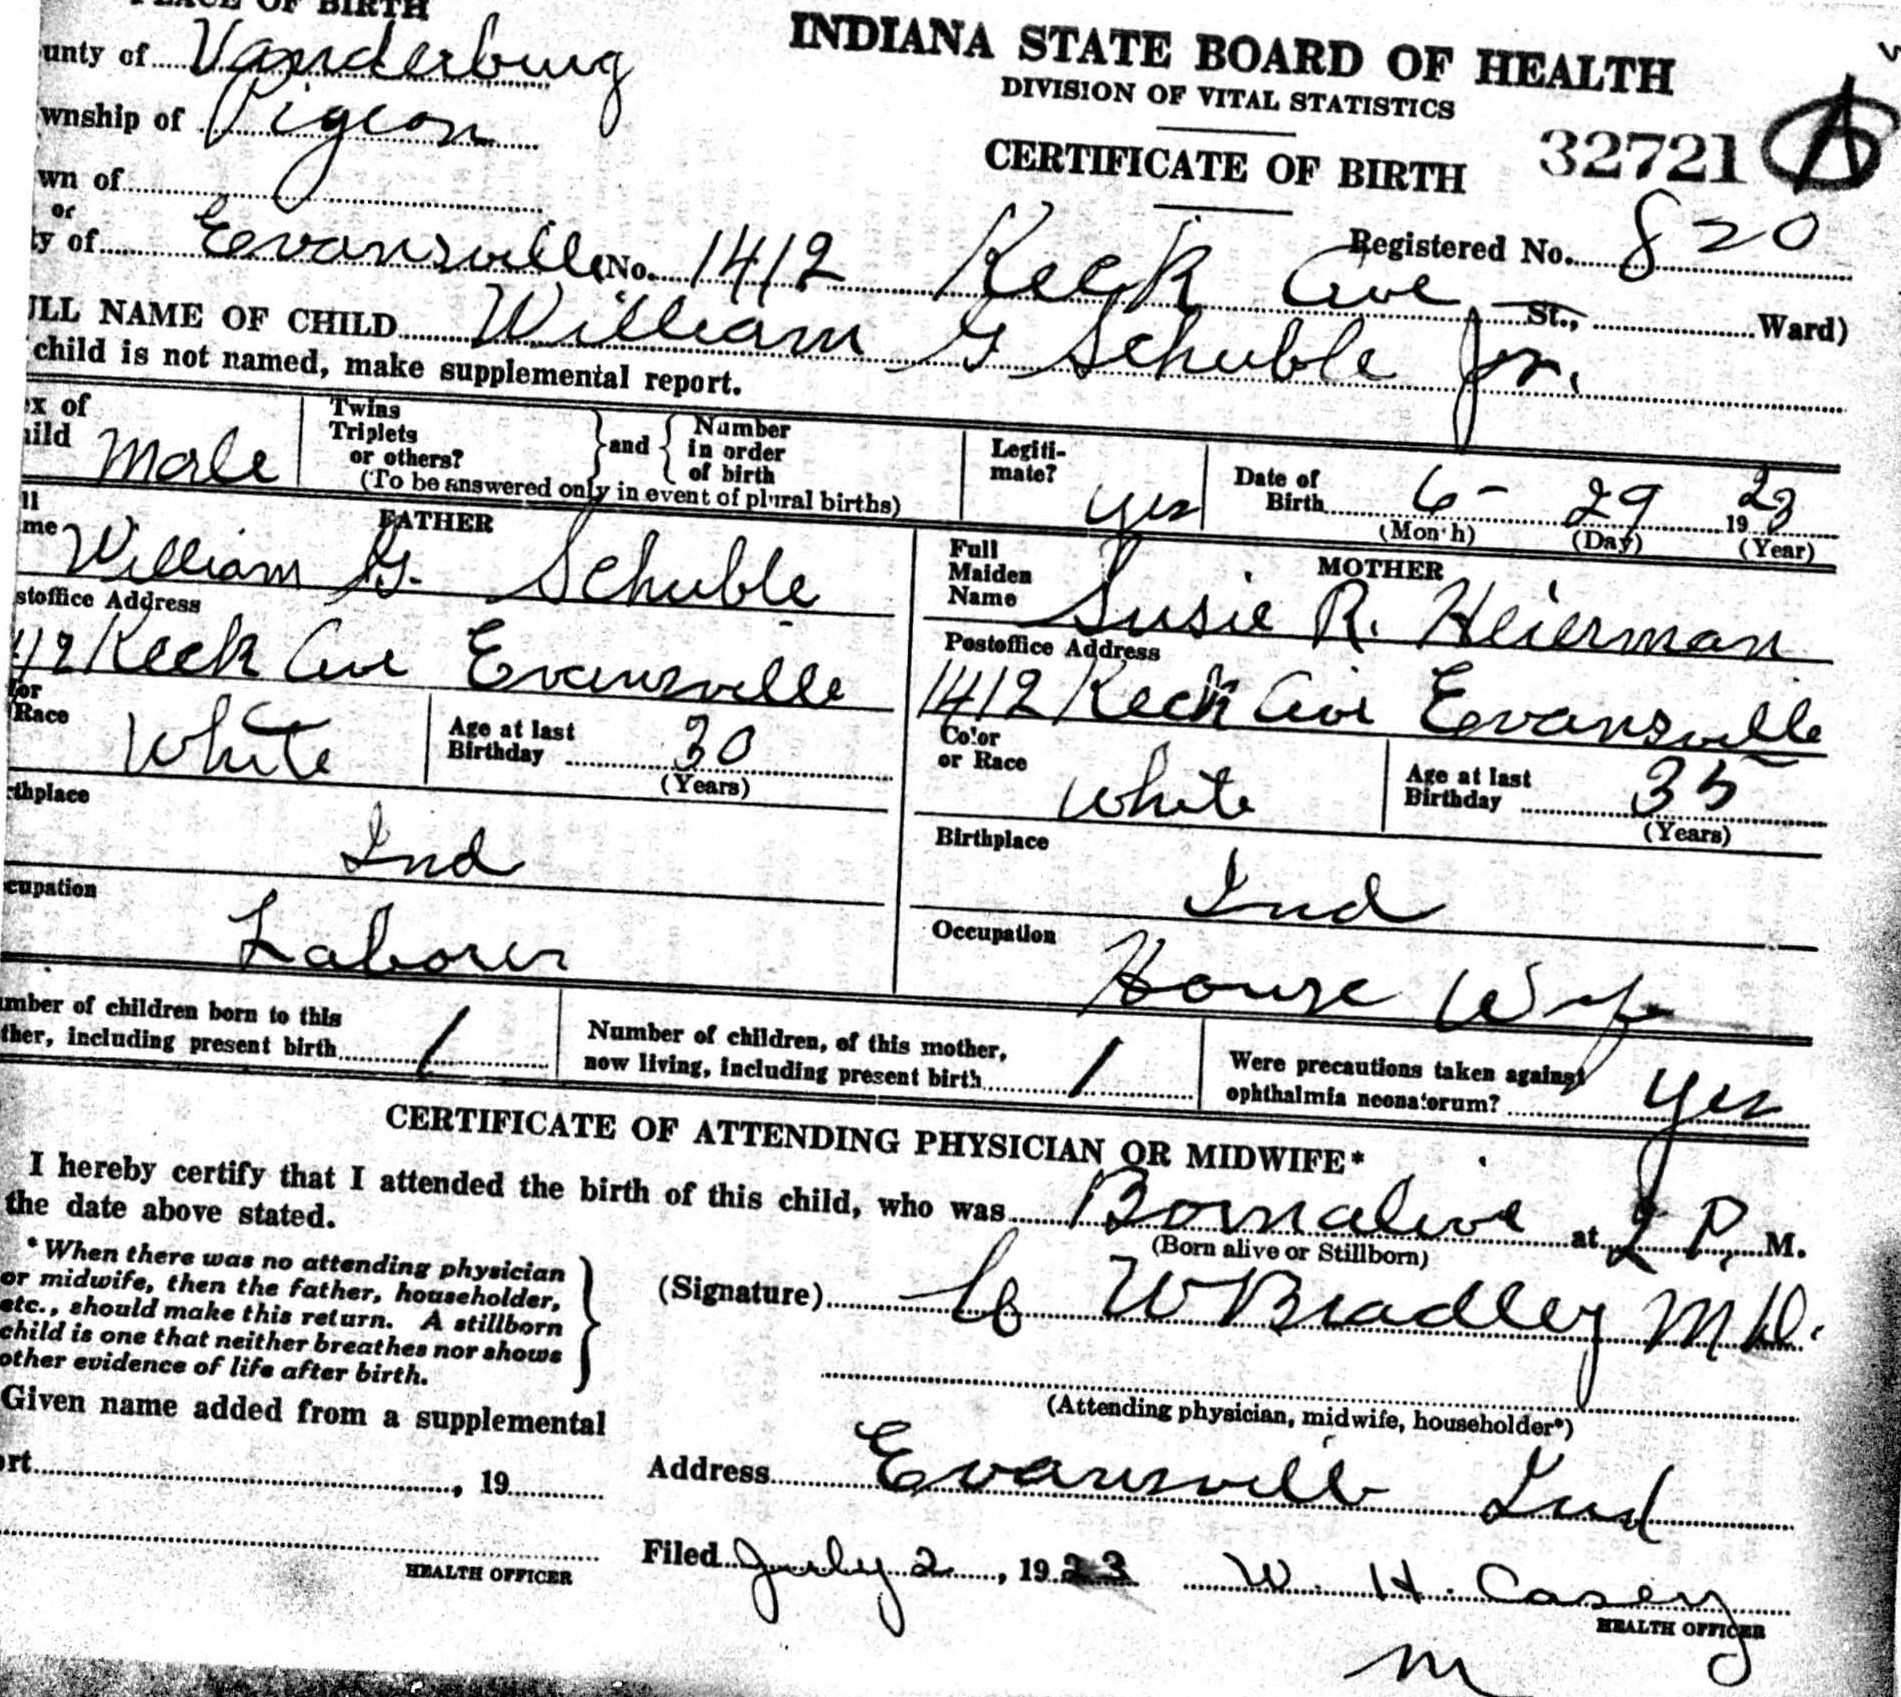 PLACE OF BIRTH
unty of Vanderburg
wnship of Pigeon
wn of
or
ty of Evansville (No. 1412 Keck Ave St., Ward)
INDIANA STATE BOARD OF HEALTH
DIVISION OF VITAL STATISTICS
CERTIFICATE OF BIRTH
32721 A
Registered No. 820
ULL NAME OF CHILD William G Schuble Jr.
child is not named, make supplemental report.
ex of hild Male
Twins Triplets or others? and Number in order of birth
(To be answered only in event of plural births)
Legiti-mate? yes
Date of Birth 6 - 29 1923
(Month) (Day) (Year)
FATHER
ll me William G. Schuble
stoffice Address
412 Keck Ave Evansville
lor Race White
Age at last Birthday 30
(Years)
rthplace
Ind
cupation
Laborer
MOTHER
Full Maiden Name Susie R. Heierman
Postoffice Address
1412 Keck Ave Evansville
Color or Race White
Age at last Birthday 35
(Years)
Birthplace
Ind
Occupation
House Wife
umber of children born to this
ther, including present birth 1
Number of children, of this mother,
now living, including present birth 1
Were precautions taken against
ophthalmia neonatorum? yes
CERTIFICATE OF ATTENDING PHYSICIAN OR MIDWIFE*
I hereby certify that I attended the birth of this child, who was Born alive at 2 P. M.
the date above stated.
(Born alive or Stillborn)
* When there was no attending physician
or midwife, then the father, householder,
etc., should make this return. A stillborn
child is one that neither breathes nor shows
other evidence of life after birth.
(Signature) C W Bradley M D.
(Attending physician, midwife, householder*)
Given name added from a supplemental
ort , 19
HEALTH OFFICER
Address Evansville Ind
Filed July 2, 1923 W. H. Casey
HEALTH OFFICER
m